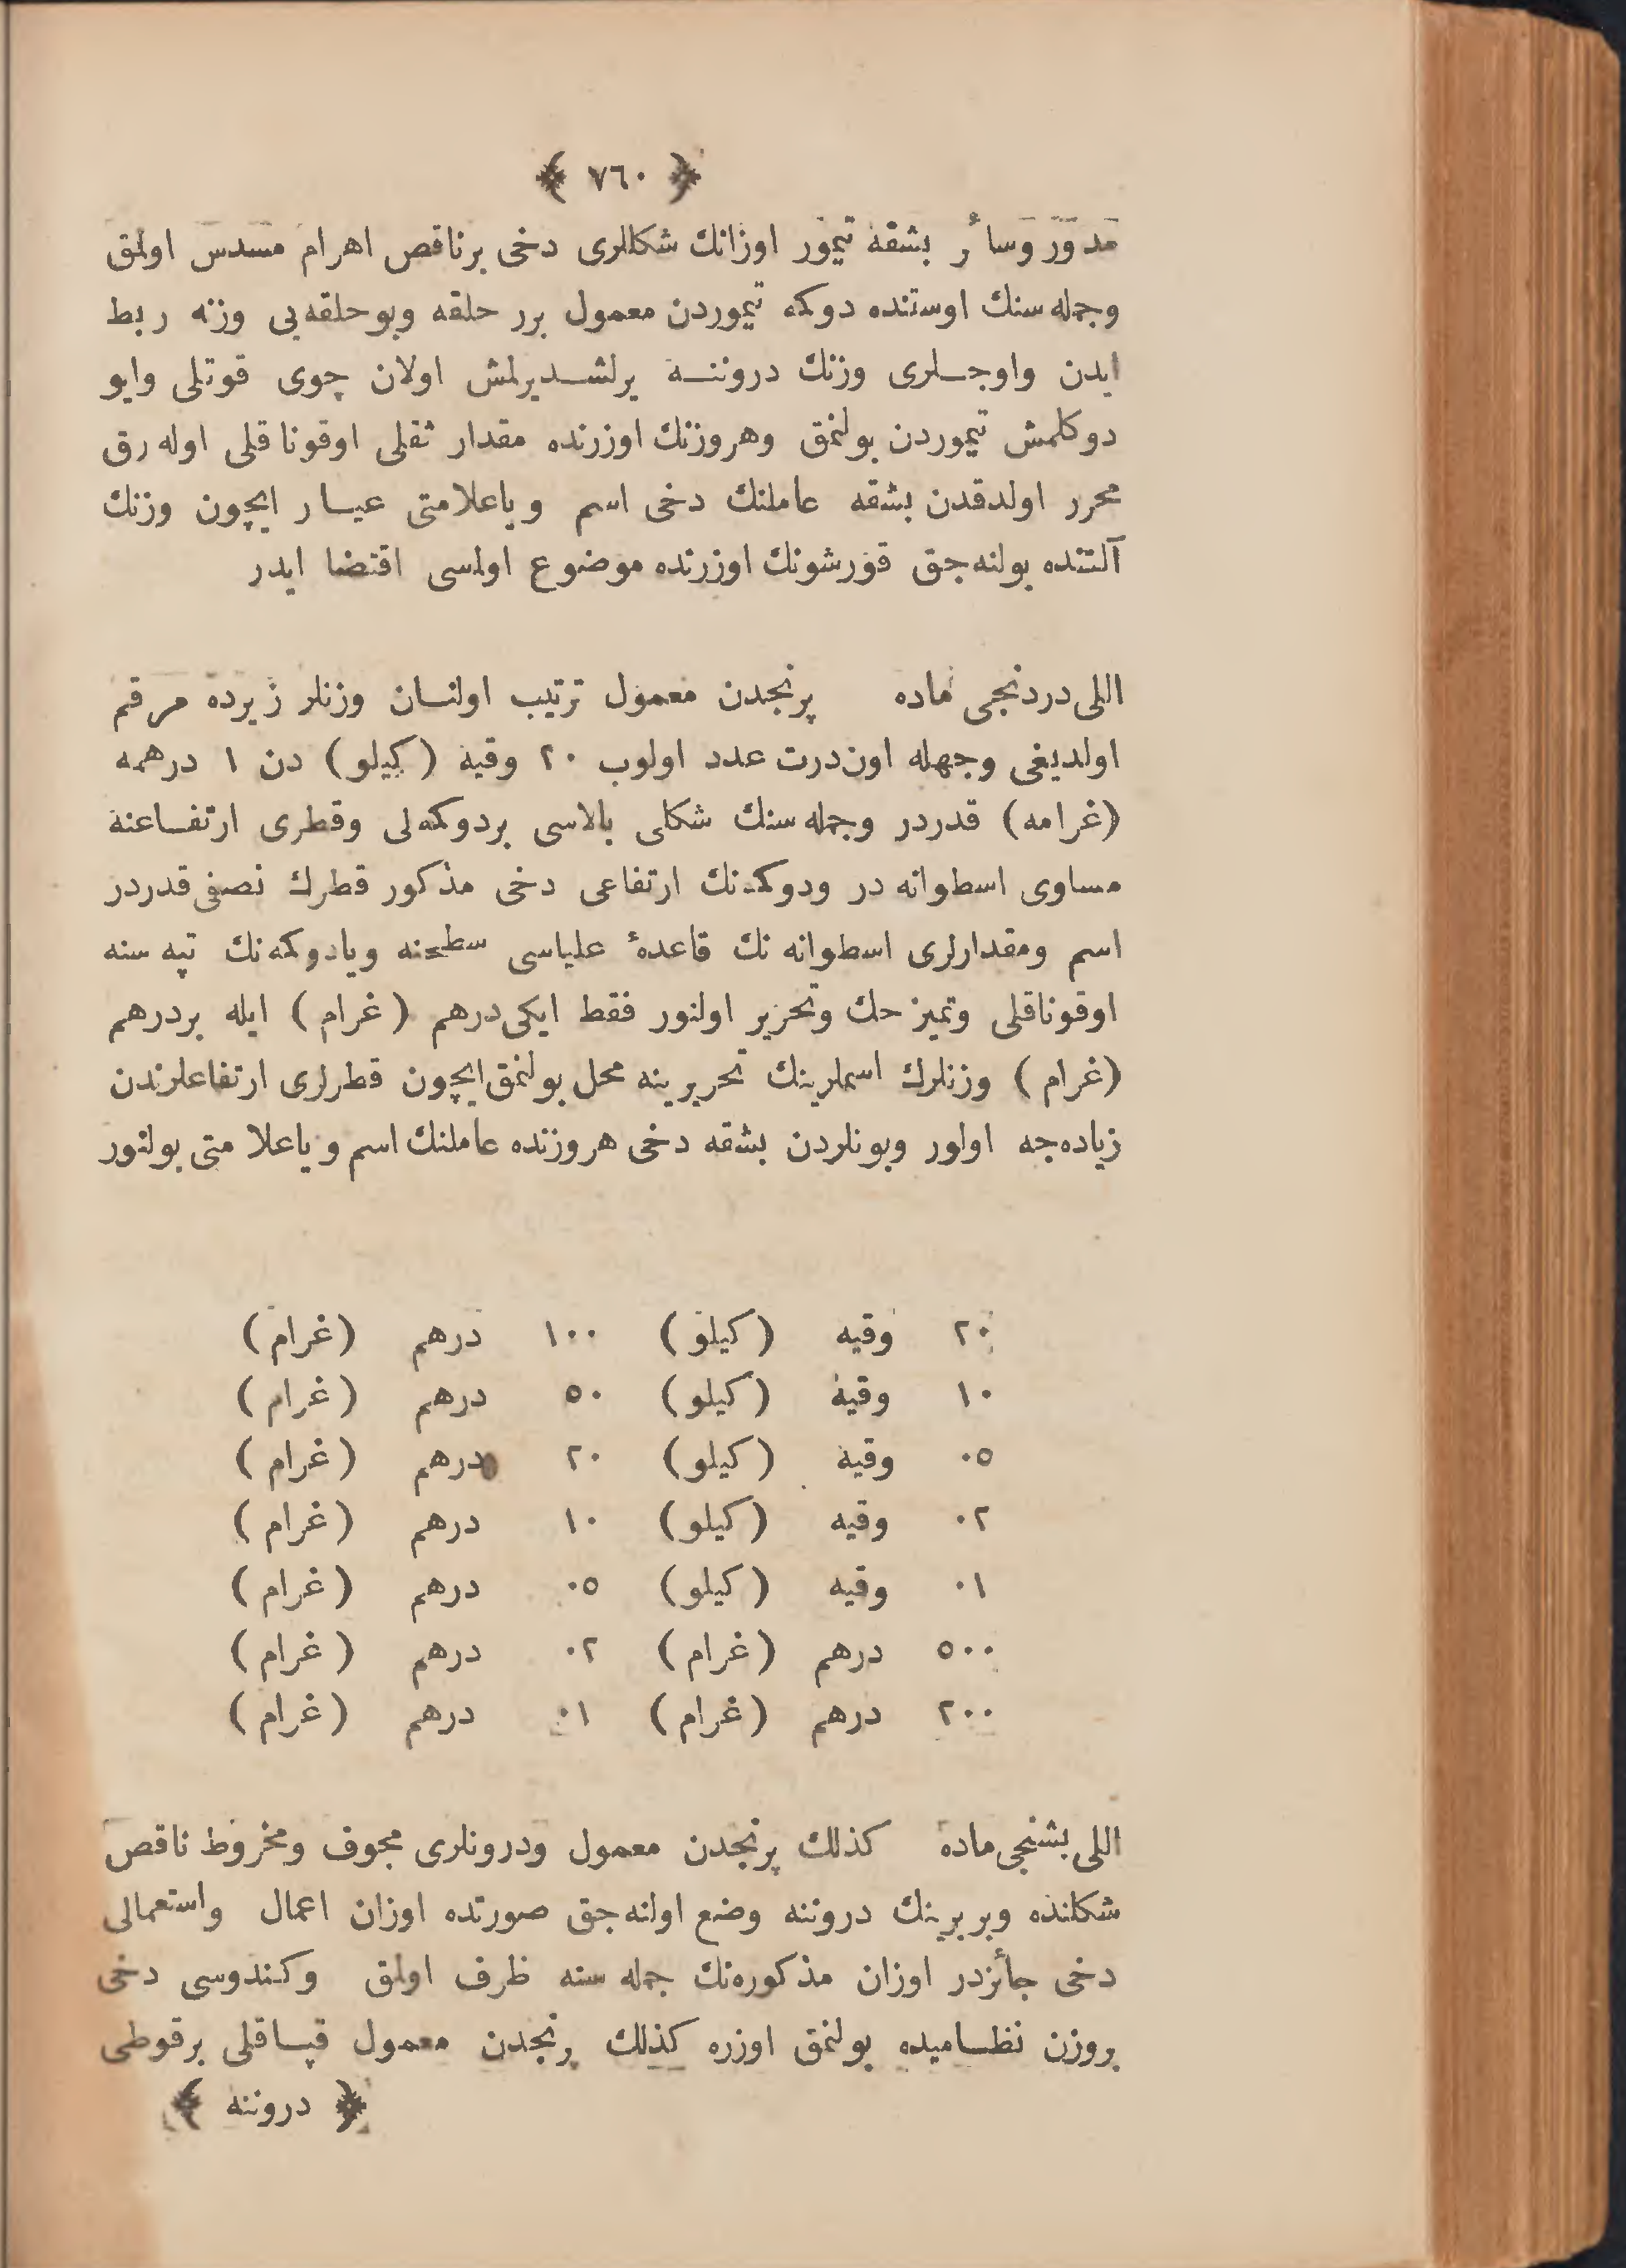 ﴿ ٧٦٠ ﴾
مدور وسائر بشقه تيمور اوزانك شكللرى دخى برناقص اهرام مسدس اولمق
وجمله سنك اوستنده دوكمه تيموردن معمول برر حلقه وبو حلقه يى وزنه ربط
ايدن واوجلرى وزنك دروننه يرلشديرلمش اولان چوى قوتلى وايو
دوكلمش تيموردن بولنمق وهروزنك اوزرنده مقدار ثقلى اوقوناقلى اوله رق
محرر اولدقدن بشقه عاملنك دخى اسم وياعلامتى عيار ايچون وزنك
آلتنده بولنه جق قورشونك اوزرنده موضوع اولمسى اقتضا ايدر
اللى دردنجى ماده پرنجدن معمول ترتيب اولنان وزنلر زيرده مرقم
اولديغى وجهله اون درت عدد اولوب ٢٠ وقيه (كيلو) دن ١ درهمه
(غرامه) قدردر وجمله سنك شكلى بالاسى بردوكمه لى وقطرى ارتفاعنه
مساوى اسطوانه در ودوكمه نك ارتفاعى دخى مذكور قطرك نصفى قدردر
اسم ومقدارلرى اسطوانه نك قاعدهٔ علياسى سطحنه ويادوكمه نك تپه سنه
اوقوناقلى وتميز حك وتحرير اولنور فقط ايكى درهم (غرام) ايله بردرهم
(غرام) وزنلرك اسملرينك تحريرينه محل بولنمق ايچون قطرلرى ارتفاعلرندن
زياده جه اولور وبونلردن بشقه دخى هروزنده عاملنك اسم وياعلامتى بولنور
٢٠ وقيه (كيلو) ١٠٠ درهم (غرام)
١٠ وقيه (كيلو) ٥٠ درهم (غرام)
٠٥ وقيه (كيلو) ٢٠ درهم (غرام)
٠٢ وقيه (كيلو) ١٠ درهم (غرام)
٠١ وقيه (كيلو) ٠٥ درهم (غرام)
٥٠٠ درهم (غرام) ٠٢ درهم (غرام)
٢٠٠ درهم (غرام) ٠١ درهم (غرام)
اللى بشنجى ماده كذلك پرنجدن معمول ودرونلرى مجوف ومخروط ناقص
شكلنده وبربرينك دروننه وضع اولنه جق صورتده اوزان اعمال واستعمالى
دخى جائزدر اوزان مذكوره نك جمله سنه ظرف اولمق وكندوسى دخى
بروزن نظاميده بولنمق اوزره كذلك پرنجدن معمول قپاقلى برقوطى
﴿ دروننه ﴾